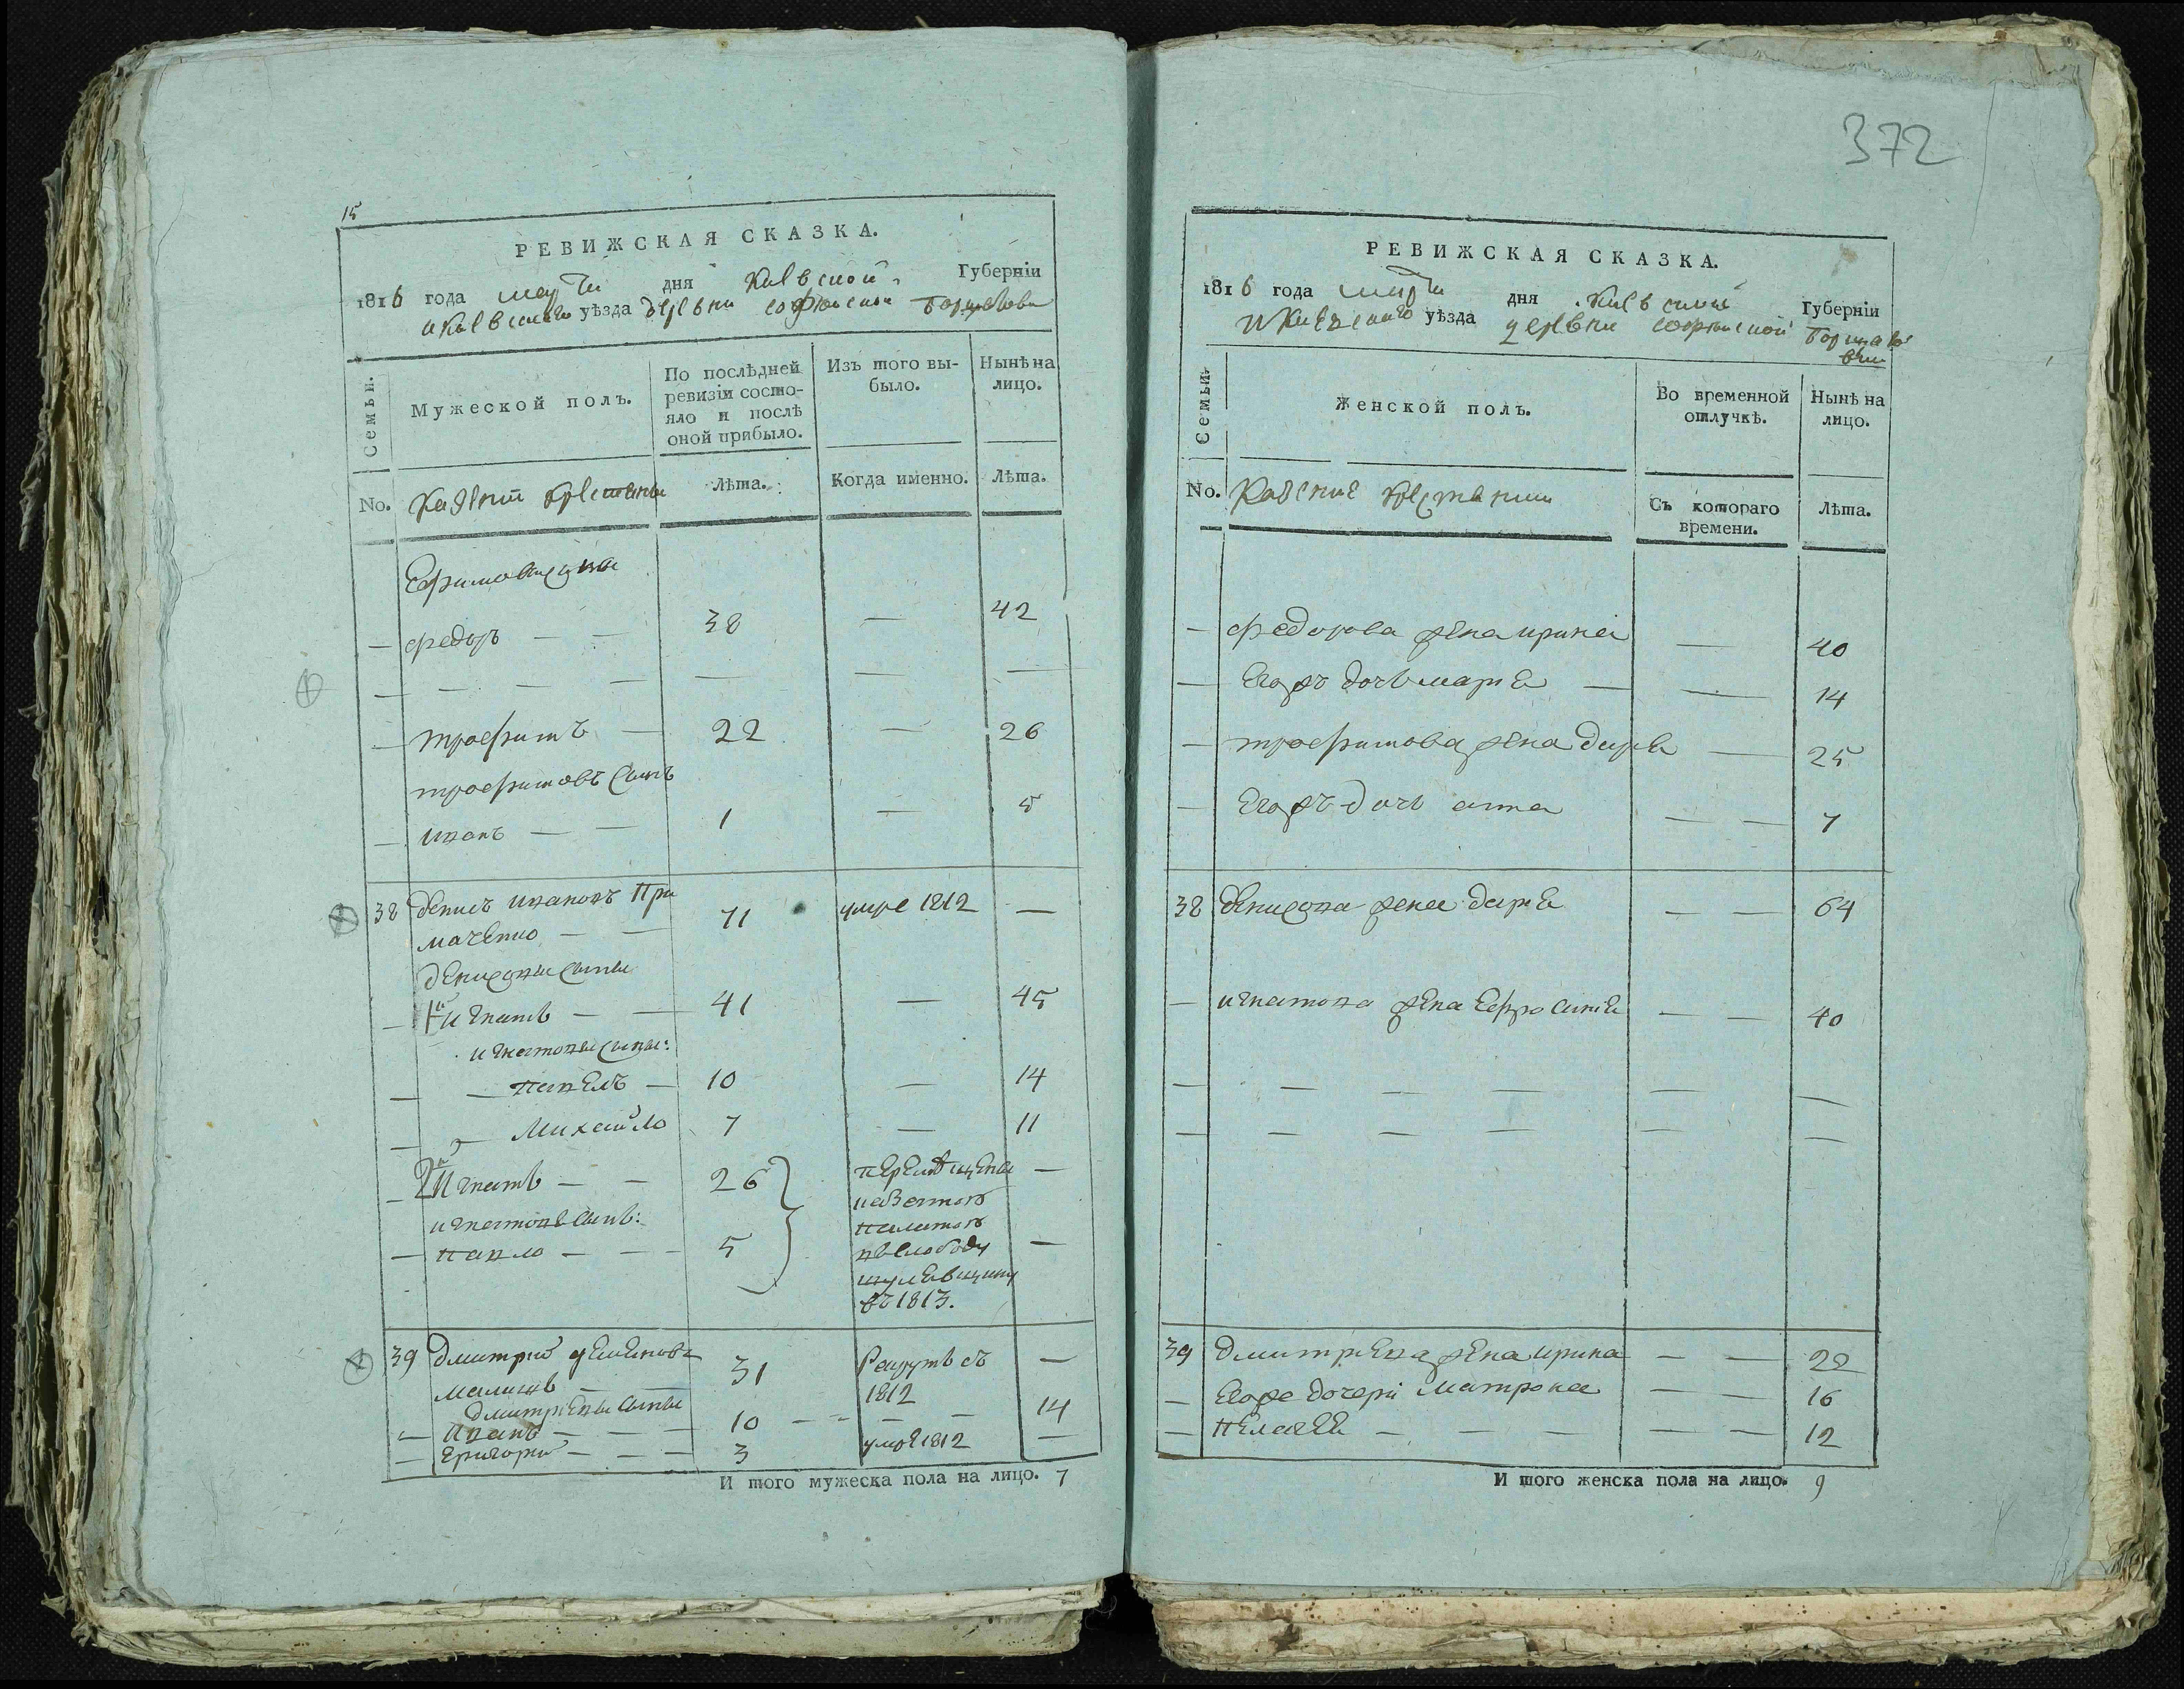 15
РЕВИЖСКАЯ СКАЗКА.
1816 года марта дня Киевской Губерніи
и Киевскаго уѣзда деревни Софіиской Борщаговки
Семьи.
Мужеской полъ.
По послѣдней ревизіи состояло и послѣ оной прибыло.
Изъ того выбыло.
Нынѣ на лицо.
No. Казенніи крестяны
Лѣта.
Когда именно.
Лѣта.
Ефимовы сины
— федоръ — — 38 — 42
— — — — — — —
— трофимъ — 22 — 26
трофимовъ сынъ
— иванъ — — 1 — 5
38 денисъ ивановъ При
маченко — — 71 умре 1812 —
денисовы сыны
— 1й игнатъ — — 41 — 45
игнатовы сыны:
— — павелъ — 10 — 14
— — Михайло 7 — 11
— 2й Игнатъ — — 26 перемѣщены —
игнатовъ сынъ:
— павло — — — 5 —
въ слободу
шулявщину
въ 1813.
39 дмитрій демяновъ
31 Рекрутъ съ —
1812
дмитріевы сыны
— иванъ — — — 10 — — — — 14
— Григорій — — — 3 умре 1812 —
И того мужеска пола на лицо. 7
372
РЕВИЖСКАЯ СКАЗКА.
1816 года марта дня Киевской Губерніи
и Киевскаго уѣзда деревни Софіиской Борщаго
вки
Семьи.
Женской полъ.
Во временной отлучкѣ.
Нынѣ на лицо.
No. Казение крестянки
Съ котораго времени.
Лѣта.
— федорова жена ирина — 40
— Егожъ дочь марія — — 14
— трофимова жена дарія — 25
— Егожъ дочь анна — — 7
38 денисова жена дарія — — 64
— игнатова жена Ефросинія — — 40
— — — — — —
— — — — — —
39 дмитріева жена ирина — — 22
— Егоже дочери Матрона — — 16
— Пелагея — — — — — 12
И того женска пола на лицо. 9